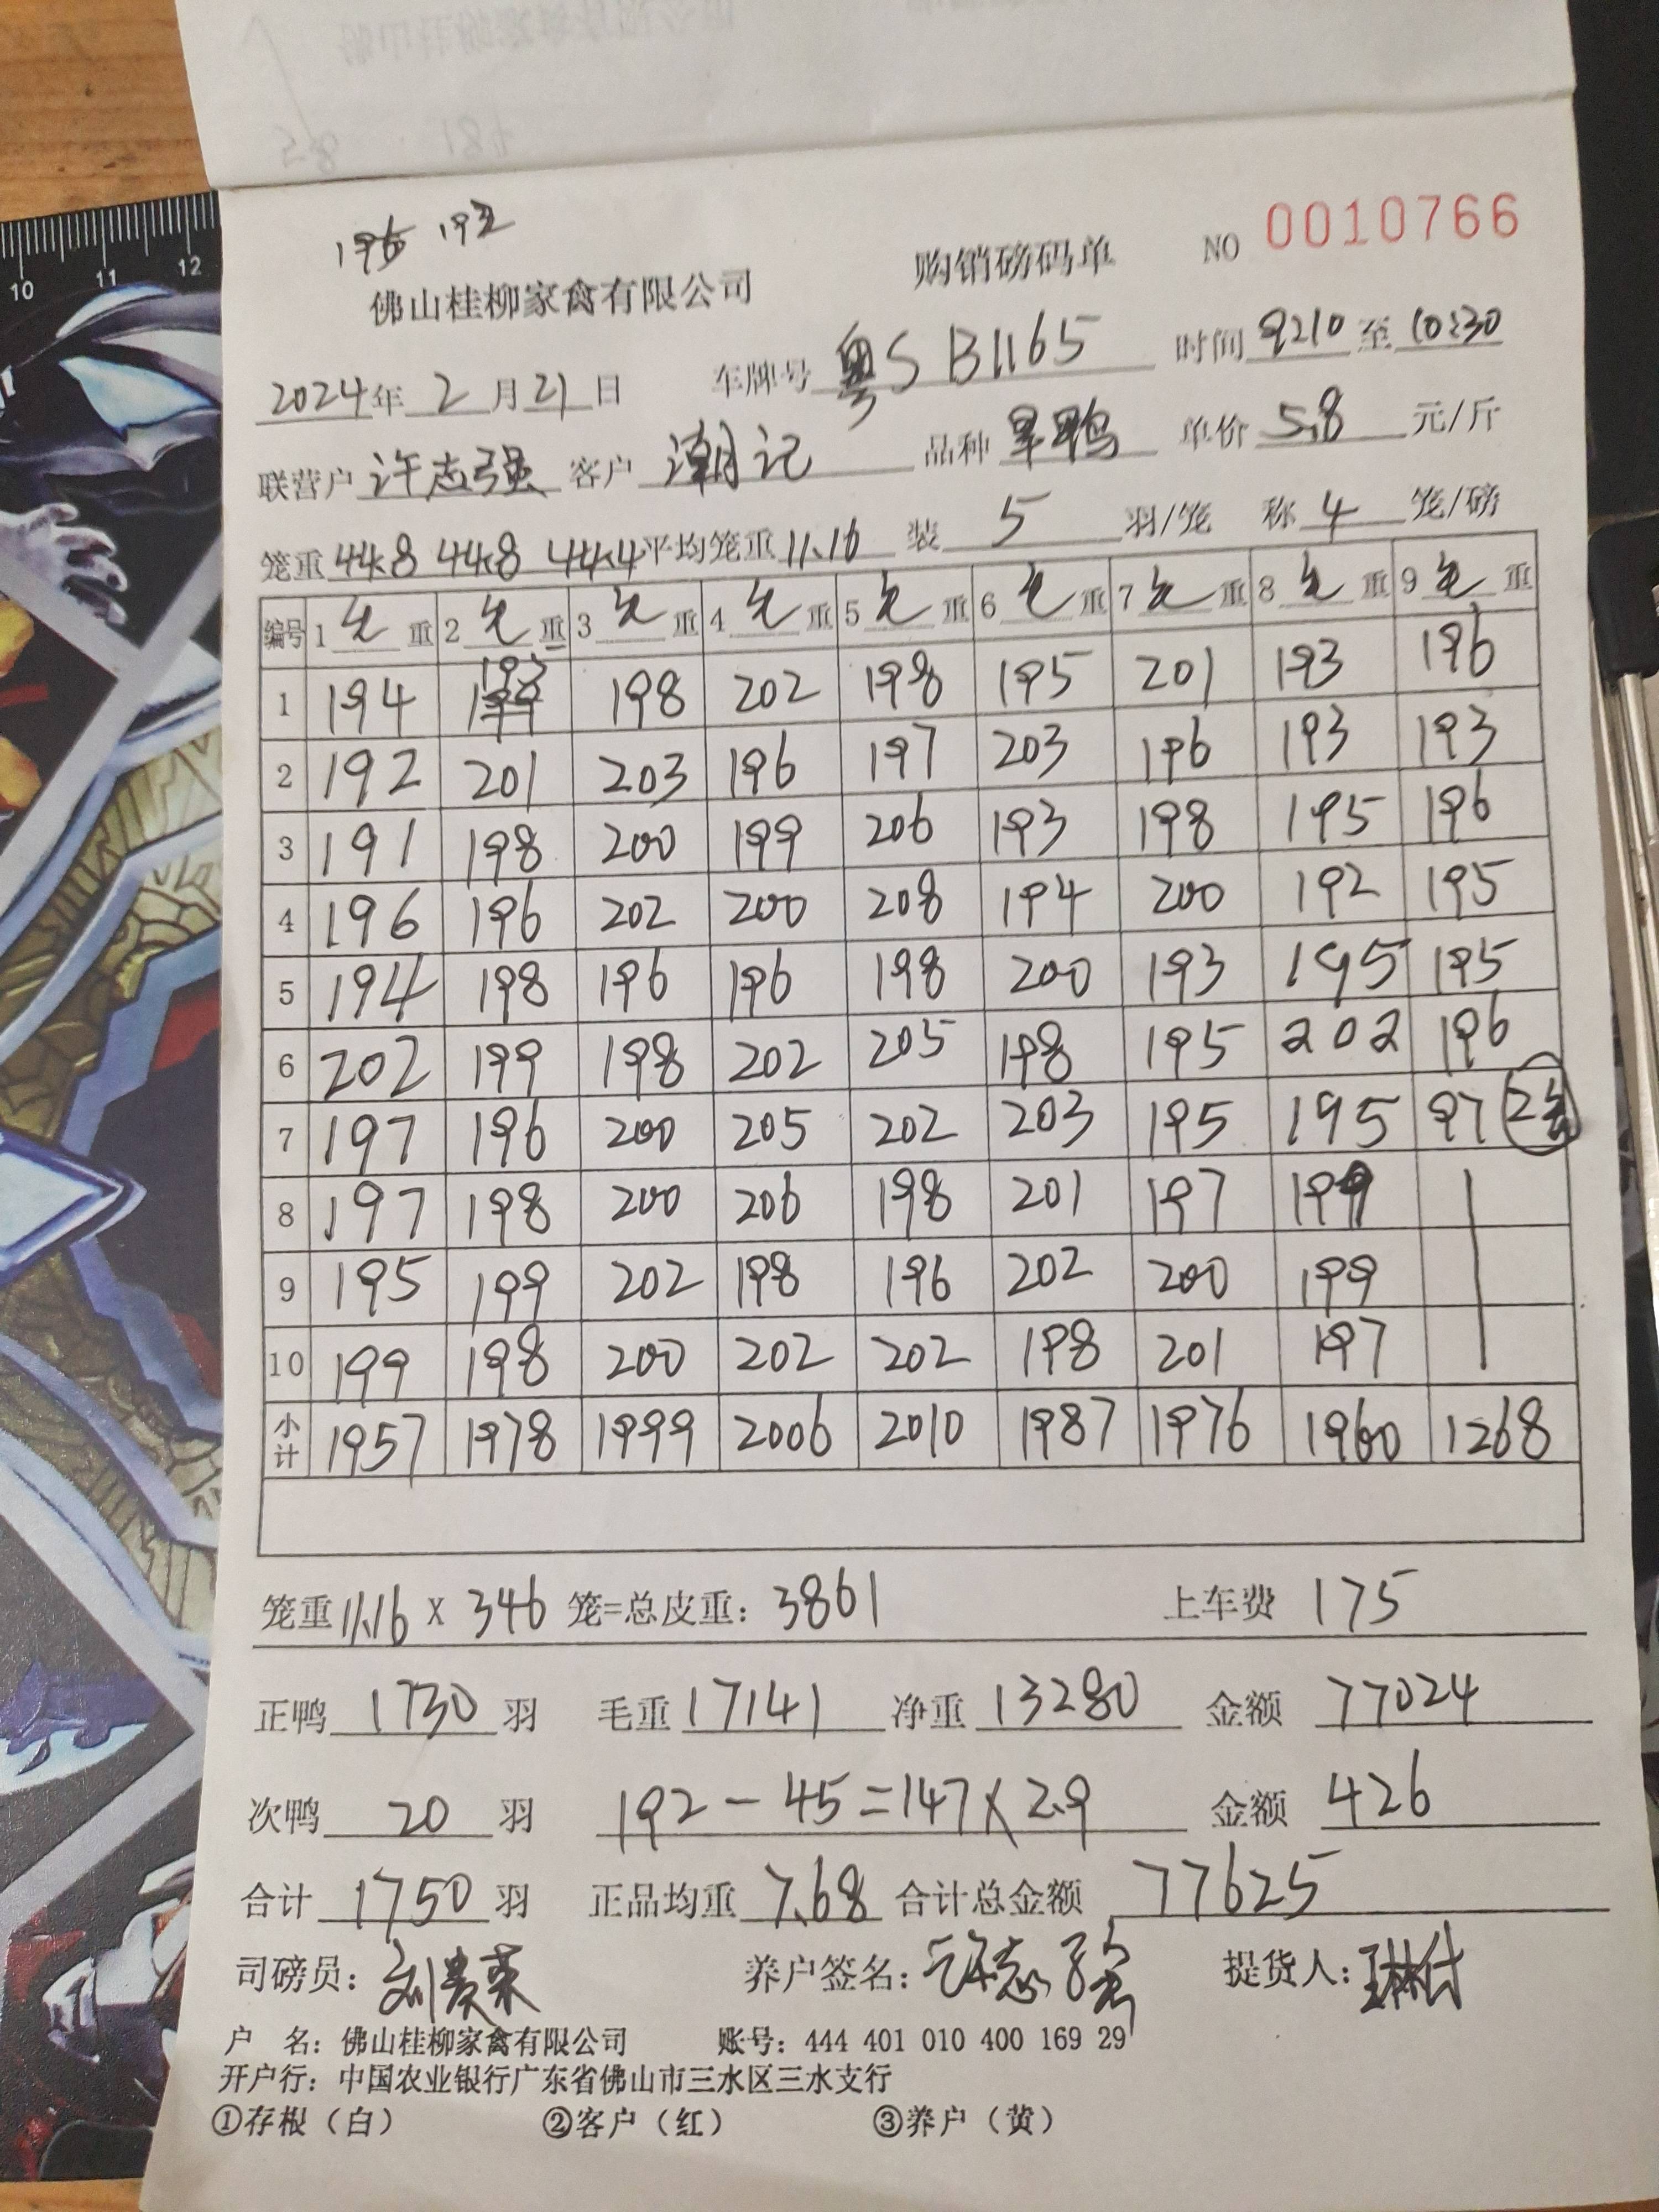 196 192
NO 0010766
佛山桂柳家禽有限公司 购销磅码单
2024年 2 月 21 日 车牌号 粤S B1165 时间 9:10 至 10:30
联营户 许志强 客户 潮记 品种 旱鸭 单价 5.8 元/斤
笼重 44.8 44.8 44.4 平均笼重 11.16 装 5 羽/笼 称 4 笼/磅
编号 1 毛 重 2 毛 重 3 毛 重 4 毛 重 5 毛 重 6 毛 重 7 毛 重 8 毛 重 9 毛 重
1 194 195 198 202 198 195 201 193 196
2 192 201 203 196 197 203 196 193 193
3 191 198 200 199 206 193 198 195 196
4 196 196 202 200 208 194 200 192 195
5 194 198 196 196 198 200 193 195 195
6 202 199 198 202 205 198 195 202 196
7 197 196 200 205 202 203 195 195 97 2笼
8 197 198 200 206 198 201 197 199
9 195 199 202 198 196 202 200 199
10 199 198 200 202 202 198 201 197
小计 1957 1978 1999 2006 2010 1987 1976 1960 1268
笼重 11.16 X 346 笼=总皮重: 3861 上车费 175
正鸭 1730 羽 毛重 17141 净重 13280 金额 77024
次鸭 20 羽 192 - 45 = 147 X 2.9 金额 426
合计 1750 羽 正品均重 7.68 合计总金额 77625
司磅员: 刘贵荣 养户签名: 许志强 提货人:
户 名: 佛山桂柳家禽有限公司 账号: 444 401 010 400 169 29
开户行: 中国农业银行广东省佛山市三水区三水支行
①存根(白) ②客户(红) ③养户(黄)